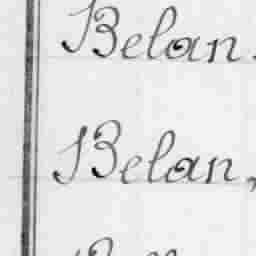 Belan.
Belan,